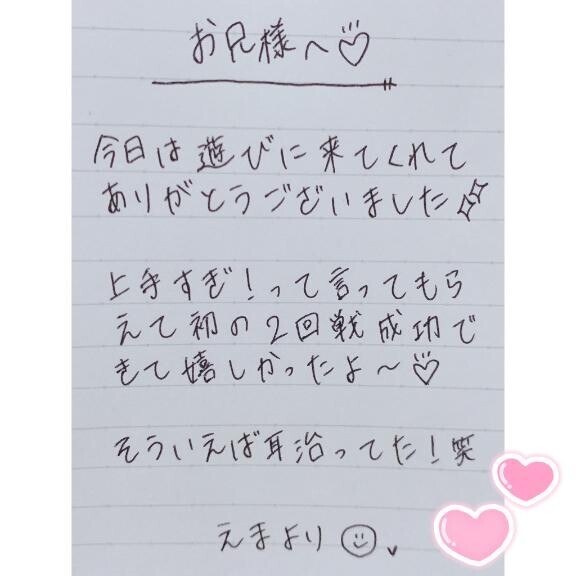 お兄様へ♡
今日は遊びに来てくれて
ありがとうございました✨
上手すぎ!って言ってもら
えて初の2回戦成功で
きて嬉しかったよ〜♡
そういえば耳治ってた!笑
えまより☺♥